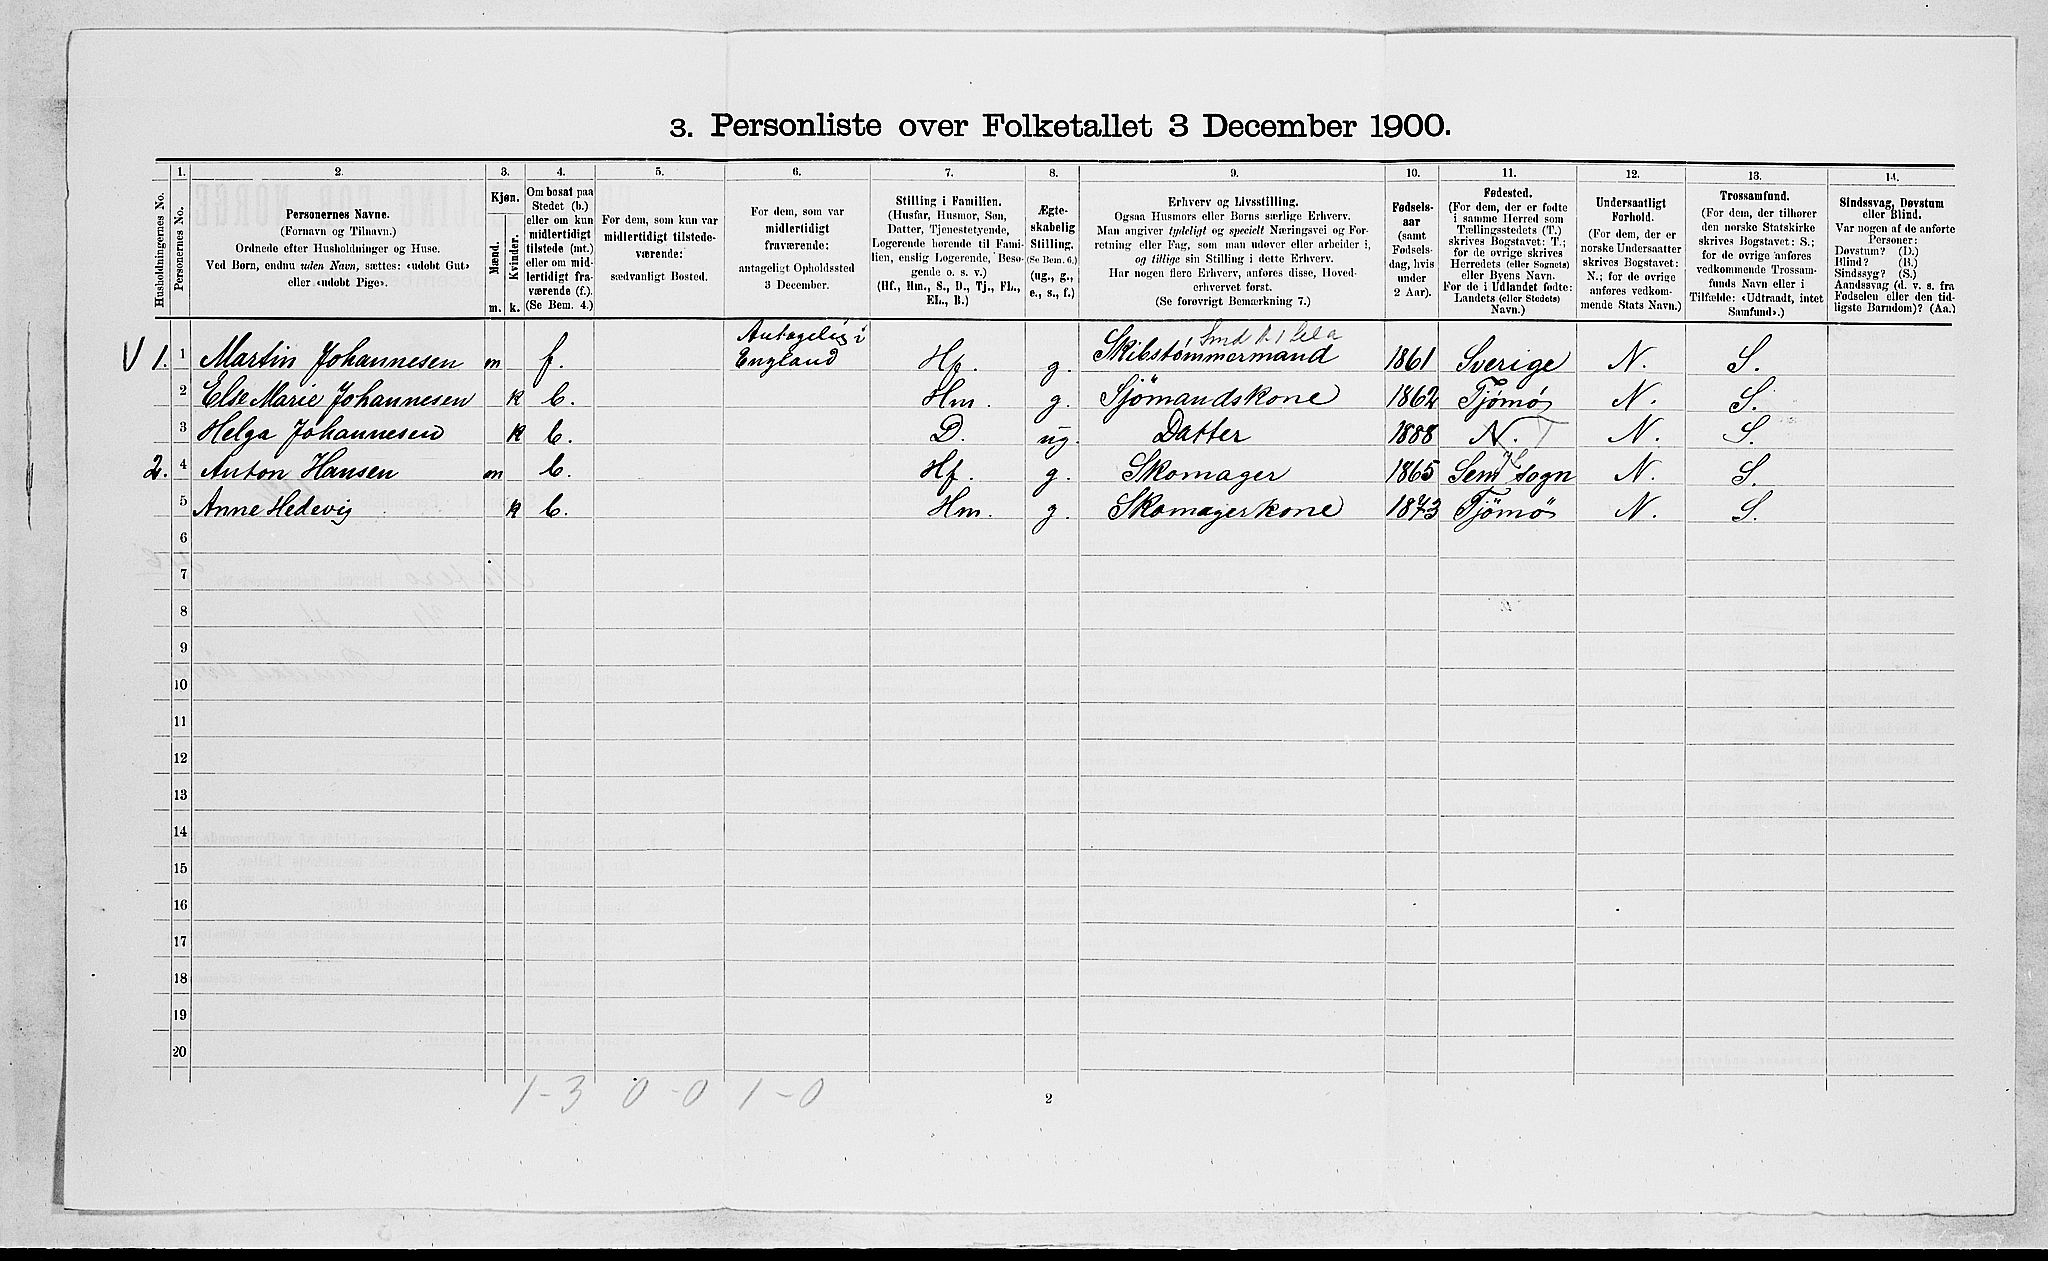 3. Personliste over Folketallet 3 December 1900.
Husholdningernes No.
1.
Personernes No.
2.
Personernes Navne.
(Fornavn og Tilnavn.)
Ordnede efter Husholdninger og Huse.
Ved Børn, endnu uden Navn, sættes: «udøbt Gut»
eller «udøbt Pige».
3.
Kjøn.
Mænd.
Kvinder.
m. k.
4.
Om bosat paa
Stedet (b.)
eller om kun
midlertidigt
tilstede (mt.)
eller om mid-
lertidigt fra-
værende (f.).
(Se Bem. 4.)
5.
For dem, som kun var
midlertidigt tilstede-
værende:
sædvanligt Bosted.
6.
For dem, som var
midlertidigt
fraværende:
antageligt Opholdssted
3 December.
7.
Stilling i Familien.
(Husfar, Husmor, Søn,
Datter, Tjenestetyende,
Logerende hørende til Fami-
lien, enslig Logerende, Besø-
gende o. s. v.)
(Hf., Hm., S., D., Tj., FL.,
EL., B.)
8.
Ægte-
skabelig
Stilling.
(Se Bem. 6.)
(ug., g.,
e., s., f.)
9.
Erhverv og Livsstilling.
Ogsaa Husmors eller Børns særlige Erhverv.
Man angiver tydeligt og specielt Næringsvei og For-
retning eller Fag, som man udøver eller arbeider i,
og tillige sin Stilling i dette Erhverv.
Har nogen flere Erhverv, anføres disse, Hoved-
erhvervet først.
(Se forøvrigt Bemærkning 7.)
10.
Fødsels-
aar
(samt
Fødsels-
dag, hvis
under
2 Aar).
11.
Fødested.
(For dem, der er fødte
i samme Herred som
Tællingsstedets (T.)
skrives Bogstavet: T.;
for de øvrige skrives
Herredets (eller Sognets)
eller Byens Navn.
For de i Udlandet fødte:
Landets (eller Stedets)
Navn.)
12.
Undersaatligt
Forhold.
(For dem, der er
norske Undersaatter
skrives Bogstavet:
N.; for de øvrige
anføres vedkom-
mende Stats Navn.)
13.
Trossamfund.
(For dem, der tilhører
den norske Statskirke
skrives Bogstavet: S.;
for de øvrige anføres
vedkommende Trossam-
funds Navn eller i
Tilfælde: «Udtraadt, intet
Samfund».)
14.
Sindssvag, Døvstum
eller Blind.
Var nogen af de anførte
Personer:
Døvstum? (D.)
Blind? (B.)
Sindssyg? (S.)
Aandssvag (d. v. s. fra
Fødselen eller den tid-
ligste Barndom)? (Aa.)
V 1. 1 Martin Johannesen m f. Antagelig i England Hf. g. Skibstømmermand 1861 Sverige N. S.
2 Else Marie Johannesen k b. Hm. g. Sjömandskone 1862 Tjømø N. S.
3 Helga Johannesen k b. D. ug. Datter 1888 N. T N. S.
2. 4 Anton Hansen m b. Hf. g. Skomager 1865 Sem sogn N. S.
5 Anne Hedevig k b. Hm. g. Skomagerkone 1873 Tjömø N. S.
6
7
8
9
10
11
12
13
14
15
16
17
18
19
20
1-3 0-0 1-0
2